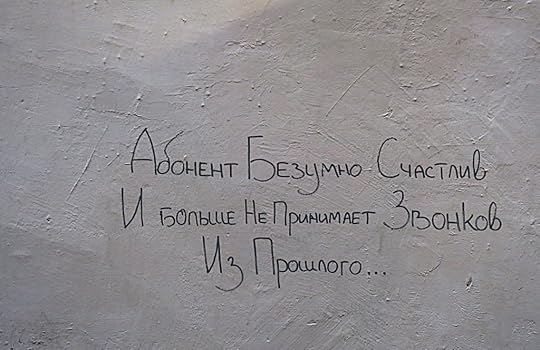 Абонент Безумно Счастлив
И больше Не Принимает Звонков
Из Прошлого...